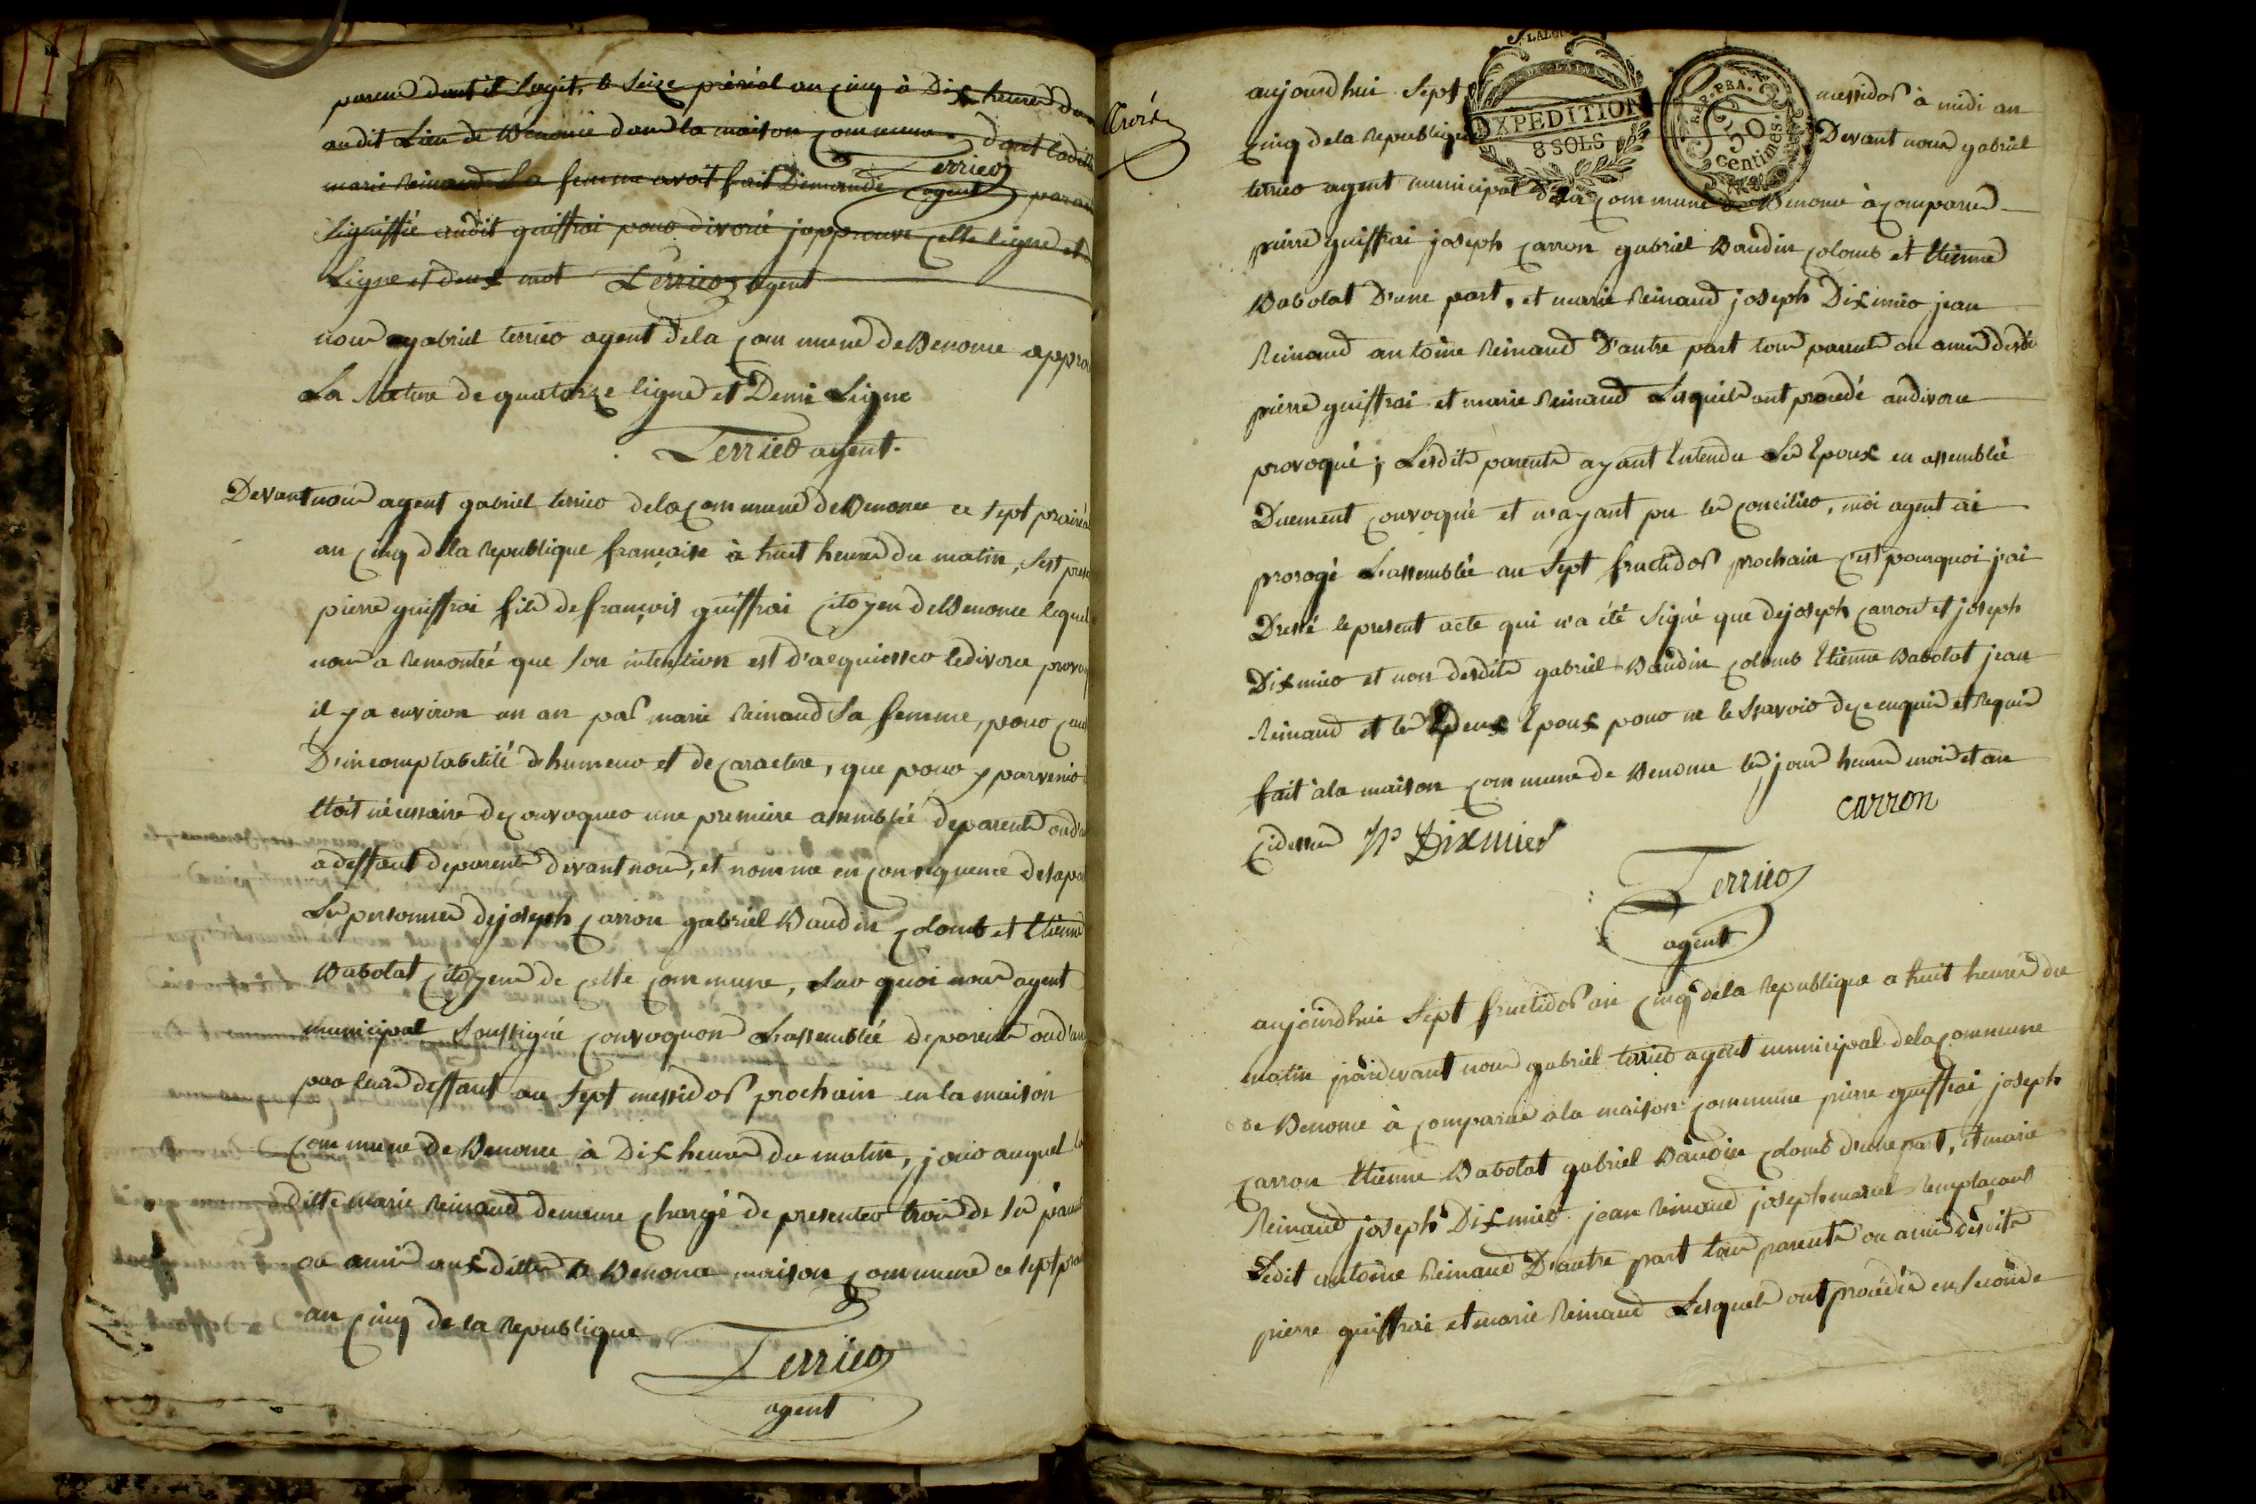 parens dont il sagit, le seize prérial an cinq à Dix heures du
audit Lieu de Bénonce dans la maison commune dont ladite
Terrier
marie Reinaud Sa femme avoit fait Demande agent par
signiffié audit guiffrai pour divorcé japprouve cette ligne et
Ligne et deux mot Terrier agent
nous gabriel terrier agent dela commune de Benonce appro
La Rature de quatorze lignes et Demi Ligne
Terrier agent.
Devant nous agent gabriel terrier dela commune de Benonce ce sept prairéal
an cinq dela Republique françaíse à huit heures du matin, s'est prese
pierre guiffrai fils de françois guiffrai citoyen de Benonce lequel
nous a Remontéé que son intention est d'acquiesser ledivorce provoq
il y a environ un an par marie Reinaud Sa femme, pour cau
D'incomptabitité dhumeur et de caractere, que pour y parvenir
étoit nécessaire de convoquer une premiere assemblée deparents oud'a
a deffaut deparents devant nous, et nomme en consequence de sa pa
Les personnes de joseph carron gabriel Baudin colomb et Etienne
Babolat citoyens de cette commune, Sur quoi nous agent
municipal soussigné convoquons L'assemblée deparents oud'am
par leurs deffaut au sept messidor prochain en la maison
commune de Benonce à Dix heures du matin, jour auquel la
ditte marie Reinaud demeure chargé de presenter trois de ses parents
ou amis aux dittes de Benonce maison commune ce sept prai
an cinq de la Republique
Terrier
agent
Divorce
aujourdhui Sept messidor à midi an
EXPEDITION
8 SOLS
REP. FRA.
50
Centimes.
cinq dela Republique Devant nous gabriel
terrier agent municipal dela commune de Benonce à comparus
pierre guiffrai joseph carron gabriel Baudin colomb et Etienne
Babolat D'une part, et marie Reinaud joseph Dixmier jean
Reinaud antoine Reinaud D'autre part tous parents ou amis desdi
pierre guiffrai et marie Reinaud Lesquels ont procedé audivorce
provoqué; Lesdits parents ayant Entendu Les Epoux en assemblée
Duement convoqué et n'ayant pu les concilier, moi agent ai
prorogé L'assemblée au Sept fructidor prochain c'est pourquoi jai
Dressé le present acte qui n'a été signé que dejoseph carron et joseph
Dixmier et non desdits gabriel Baudin colomb Etienne Babolat jean
Reinaud et les deux Epoux pour ne le scavoir de ce enquis et Requis
fait à la maison commune de Benonce les jour heure mois et an
cidessus Jh Dixmier carron
Terrier
agent
aujourdhui Sept fructidor an cinq dela Republique a huit heures du
matin pardevant nous gabriel terrier agent municipal dela commune
de Benonce à comparue ala maison commune pierre guiffrai joseph
carron Etienne Babolat gabriel Baudin colomb d'une part, et marie
Reinaud joseph Dixmier jean Reinaud joseph marcel Remplacant
Ledit antoine Reinaud D'autre part tous parents ou amis desdits
pierre guiffrai et marie Reinaud Lesquels ont procédée en seconde